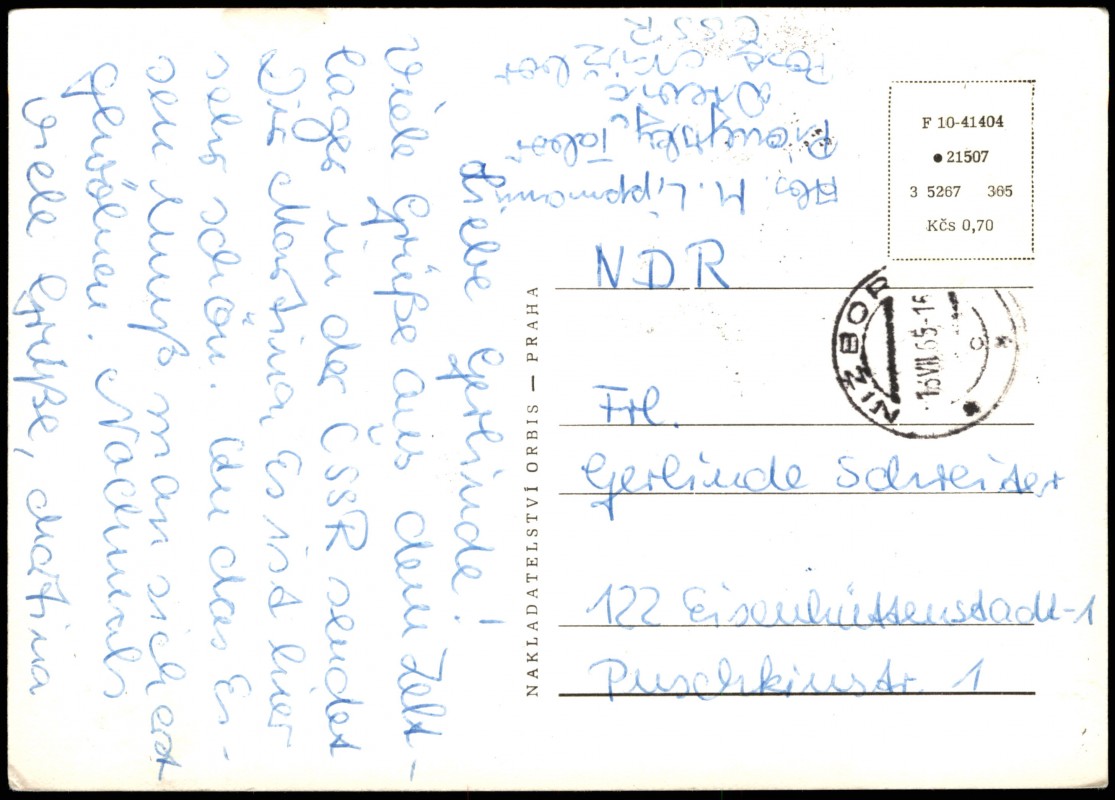 Liebe Gerlinde!
Viele Grüße aus dem Zelt-
lager in der ČSSR sendet
Dir Martina. Es ist hier
sehr schön. An das Es-
sen muß man sich erst
gewöhnen. Nochmals
viele Grüße, Martina
Abs. M. Lippmann
Pionýrský Tábor
ČSSR
NAKLADATELSTVÍ ORBIS — PRAHA
F 10-41404
● 21507
3 5267 365
Kčs 0,70
NIŽBOR
16.VII.65-16
NDR
Frl.
Gerlinde Schreiter
122 Eisenhüttenstadt-1
Puschkinstr. 1